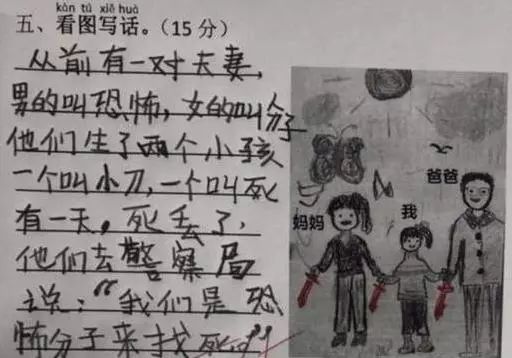 kàn tú xiě huà
五、看图写话。(15分)
从前有一对夫妻,
男的叫恐怖,女的叫分子
他们生了两个小孩
一个叫小刀,一个叫死
有一天,死丢了,
他们去警察局
说:“我们是恐
怖分子来找死的”
妈妈
我
爸爸